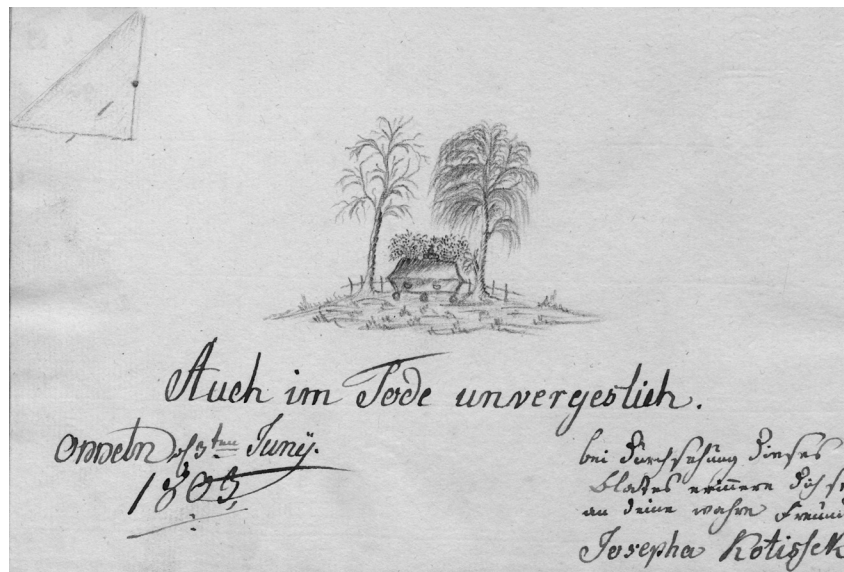 Auch im Tode unvergeslich.
den 3ten Junÿ.
1805
bei Durchsehung dieses
blates erinnere dich
an deine wahre
Josepha Kotissek